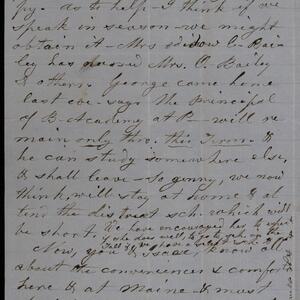 py. As to help - I think if we
speak in season - we might
obtain it - Mrs. widow C. Bai-
ley has nursed Mrs. O. Bailey
& others. George came home
last eve. says the Principal
of B- Academy at P- will re
main only thro. this Term - &
he can study somewhere else,
& shall leave - So genny, we now
think, will stay at home & at
tend the district sch. which will
be short. We have encouraged him to
if she does well, to go
Fall if we have a
Now, you & Isaac, know all
about the conveniences & comfort
here & at Maine & must